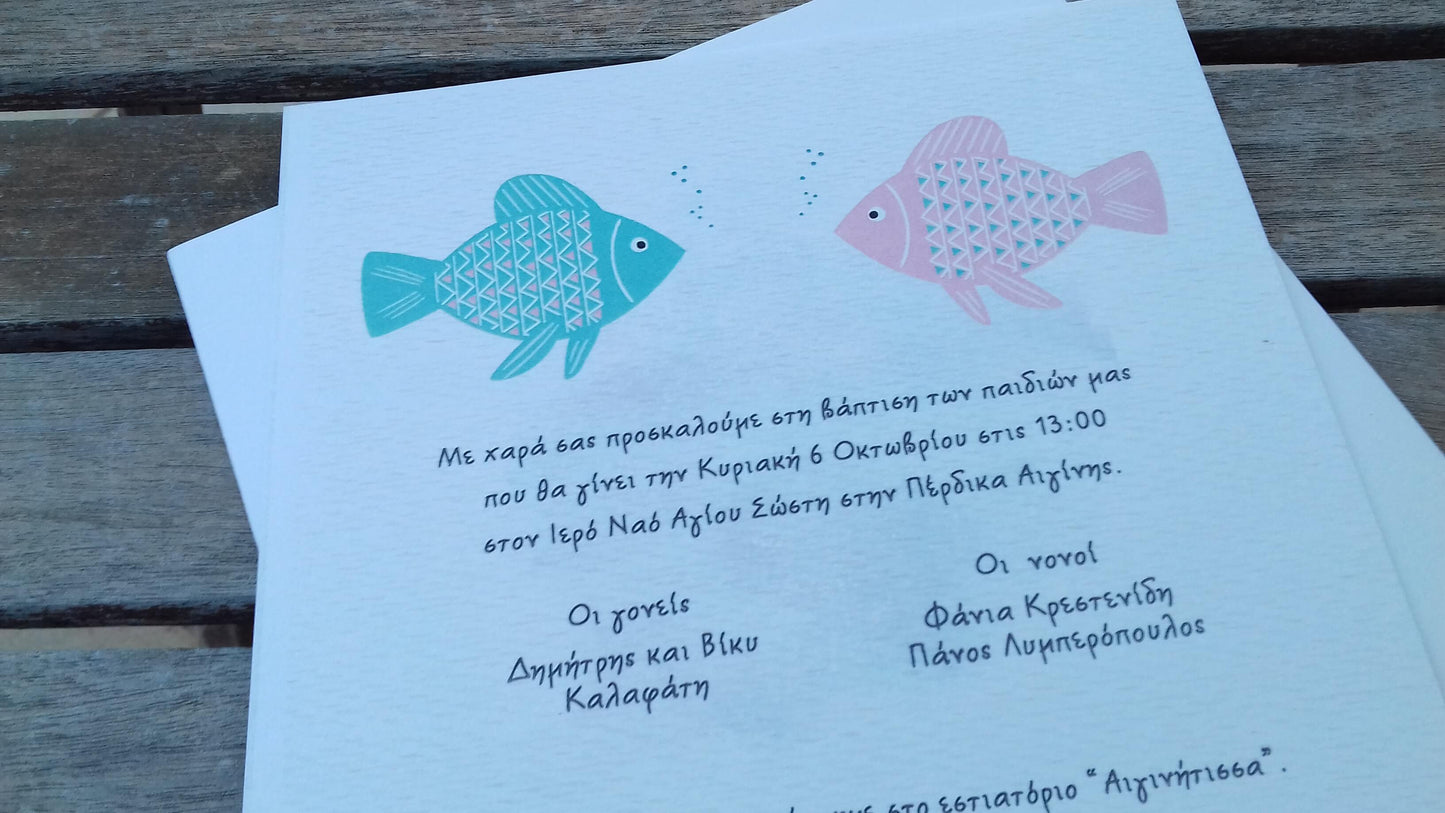 Με χαρά σας προσκαλούμε στη βάπτιση των παιδιών μας
που θα γίνει την Κυριακή 6 Οκτωβρίου στις 13:00
στον Ιερό Ναό Αγίου Σώστη στην Πέρδικα Αιγίνης.
Οι γονείς
Δημήτρης και Βίκυ
Καλαφάτη
Οι νονοί
Φάνια Κρεστενίδη
Πάνος Λυμπερόπουλος
στο εστιατόριο “Αιγινήτισσα”.